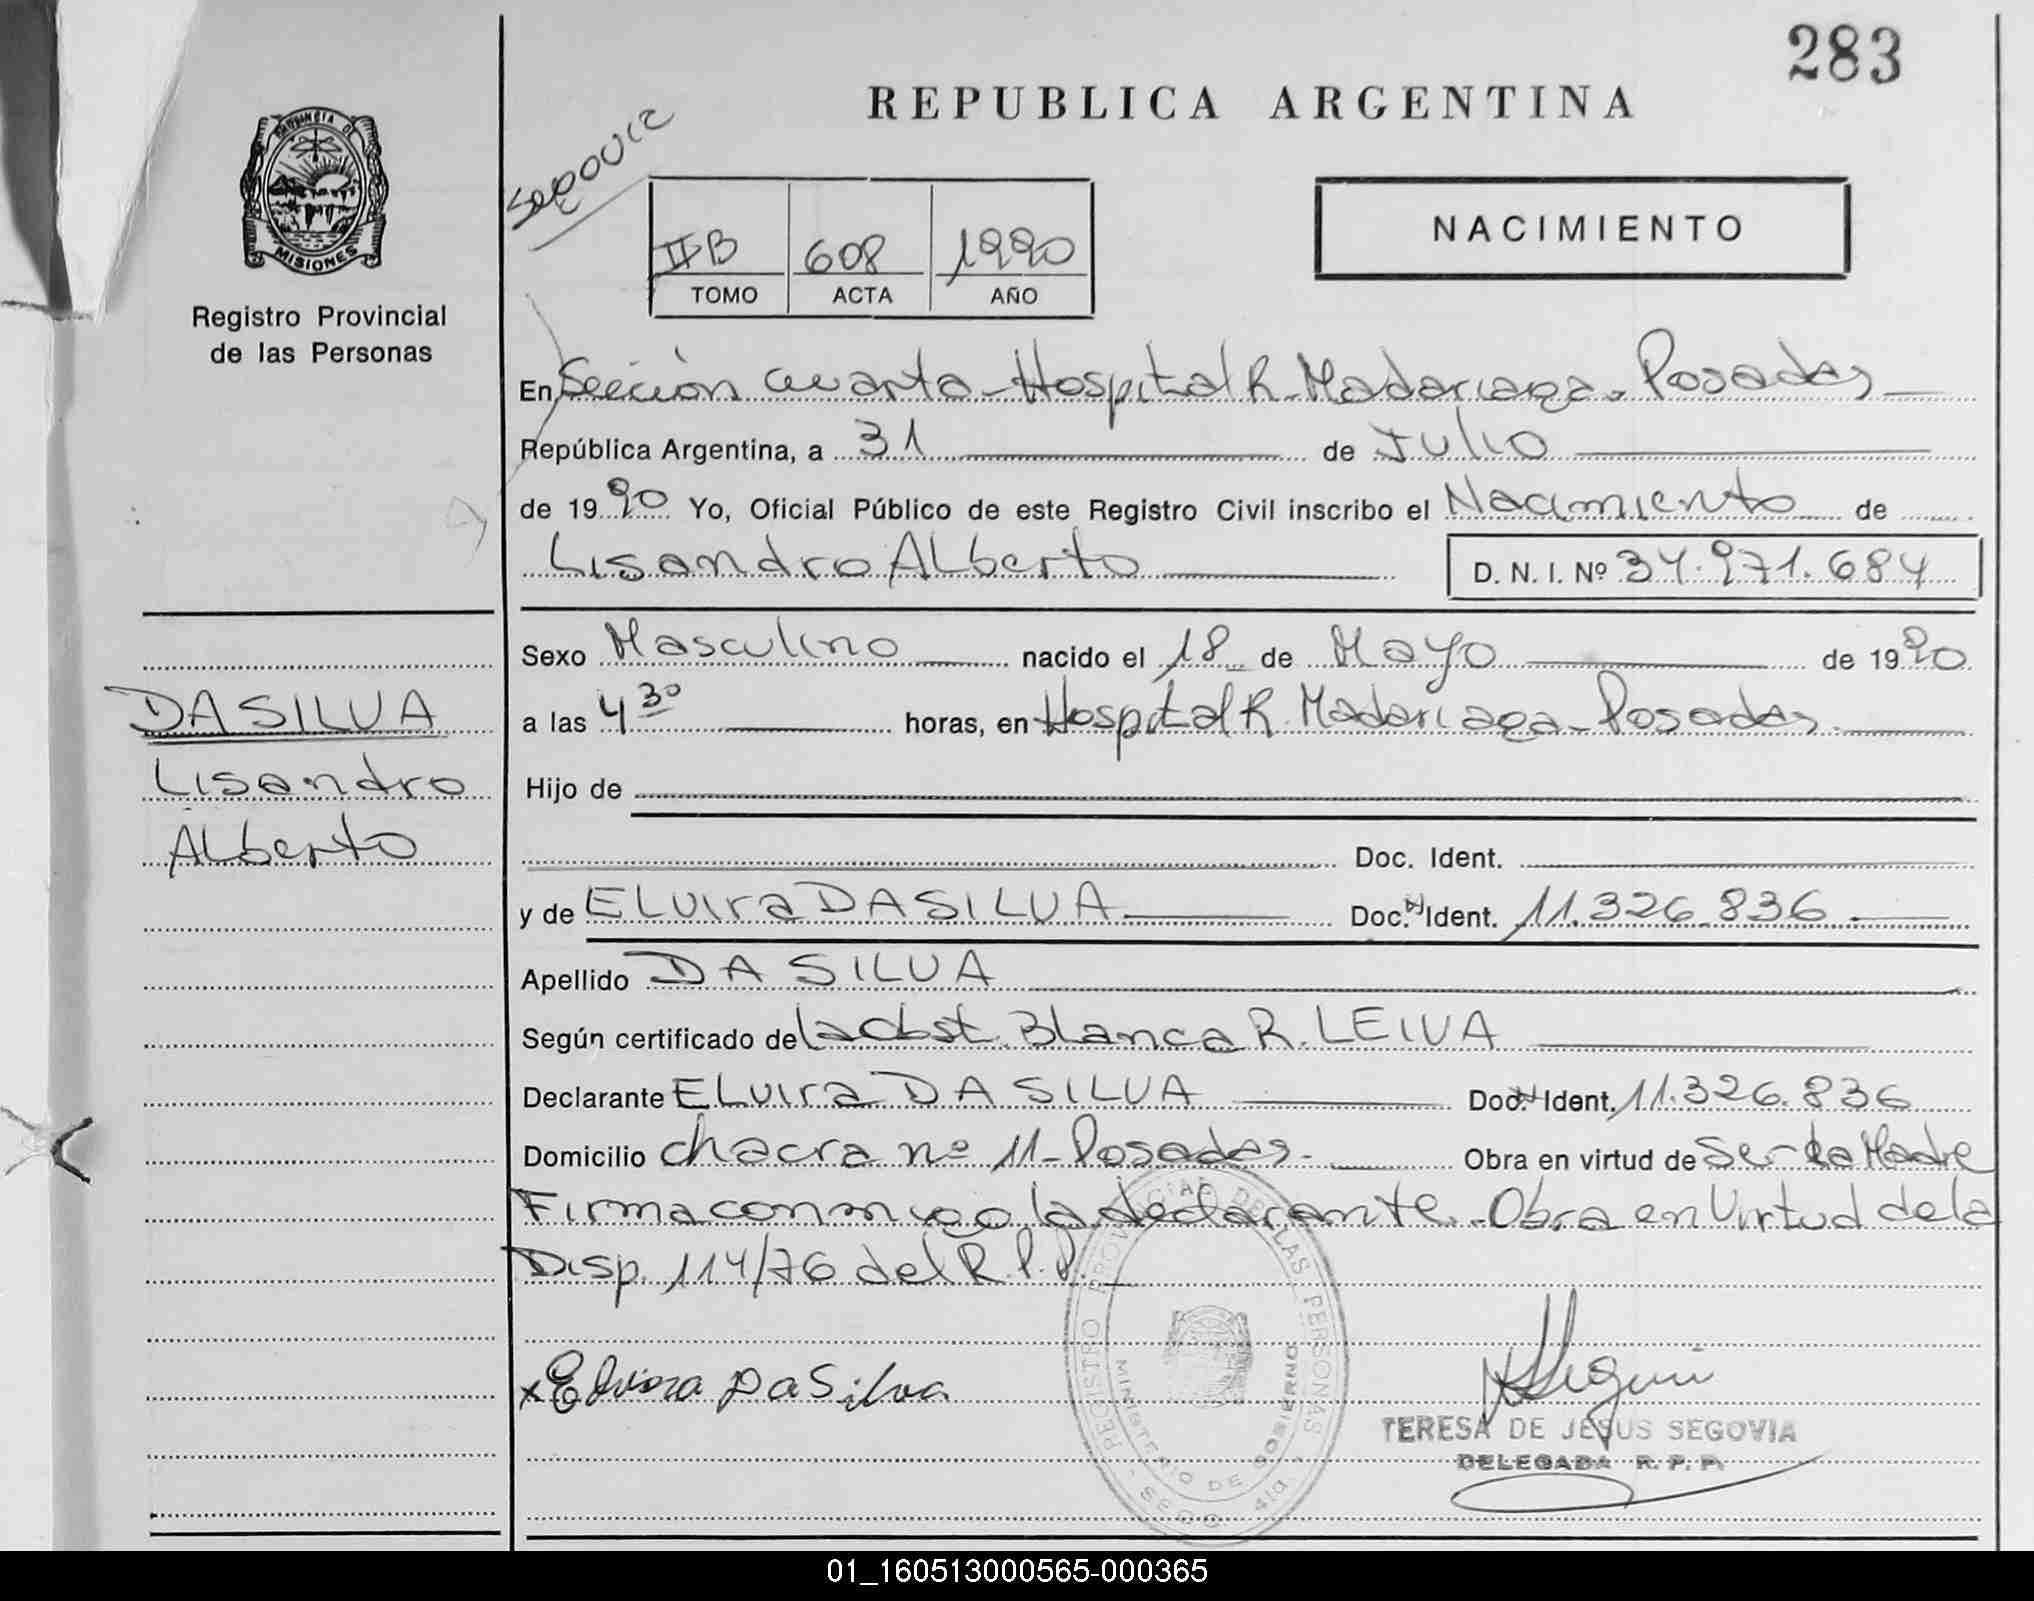 283
REPUBLICA ARGENTINA
Segovia
PROVINCIA D
MISIONES
Registro Provincial
de las Personas
NACIMIENTO
IIB 608 1990
TOMO ACTA AÑO
En Sección cuarta - Hospital R. Madariaga - Posadas
República Argentina, a 31 de Julio
de 1990 Yo, Oficial Público de este Registro Civil inscribo el Nacimiento de
Lisandro Alberto D. N. I. Nº 34.971.684
Sexo Masculino nacido el 18 de Mayo de 1990
DA SILVA
Lisandro
Alberto
a las 4 30 horas, en Hospital R. Madariaga - Posadas
Hijo de
Doc. Ident.
y de ELvira DA SILVA Doc. Ident. 11.326.836
Apellido DA SILVA
Según certificado de la Obst. Blanca R. LEIVA
Declarante ELvira DA SILVA Doc. Ident. 11.326.836
Domicilio chacra nº 11 - Posadas - Obra en virtud de Ser la Madre
Firma conmigo la declarante. Obra en Virtud de la
Disp. 114/76 del R.P.P.
REGISTRO PROVINCIAL DE LAS PERSONAS
MINISTERIO DE GOBIERNO
SECC. 4ta.
x Elvira Da Silva
TERESA DE JESUS SEGOVIA
DELEGADA R. P. P.
01_160513000565-000365